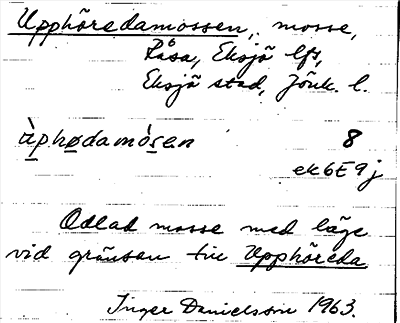 Upphöredamossen, mosse,
Råsa, Eksjö lfs,
Eksjö stad, Jönk. l.
ùphødamòsen 8
ek6E9j
Odlad mosse med läge
vid gränsen till Upphöreda
Inger Danielsson 1963.